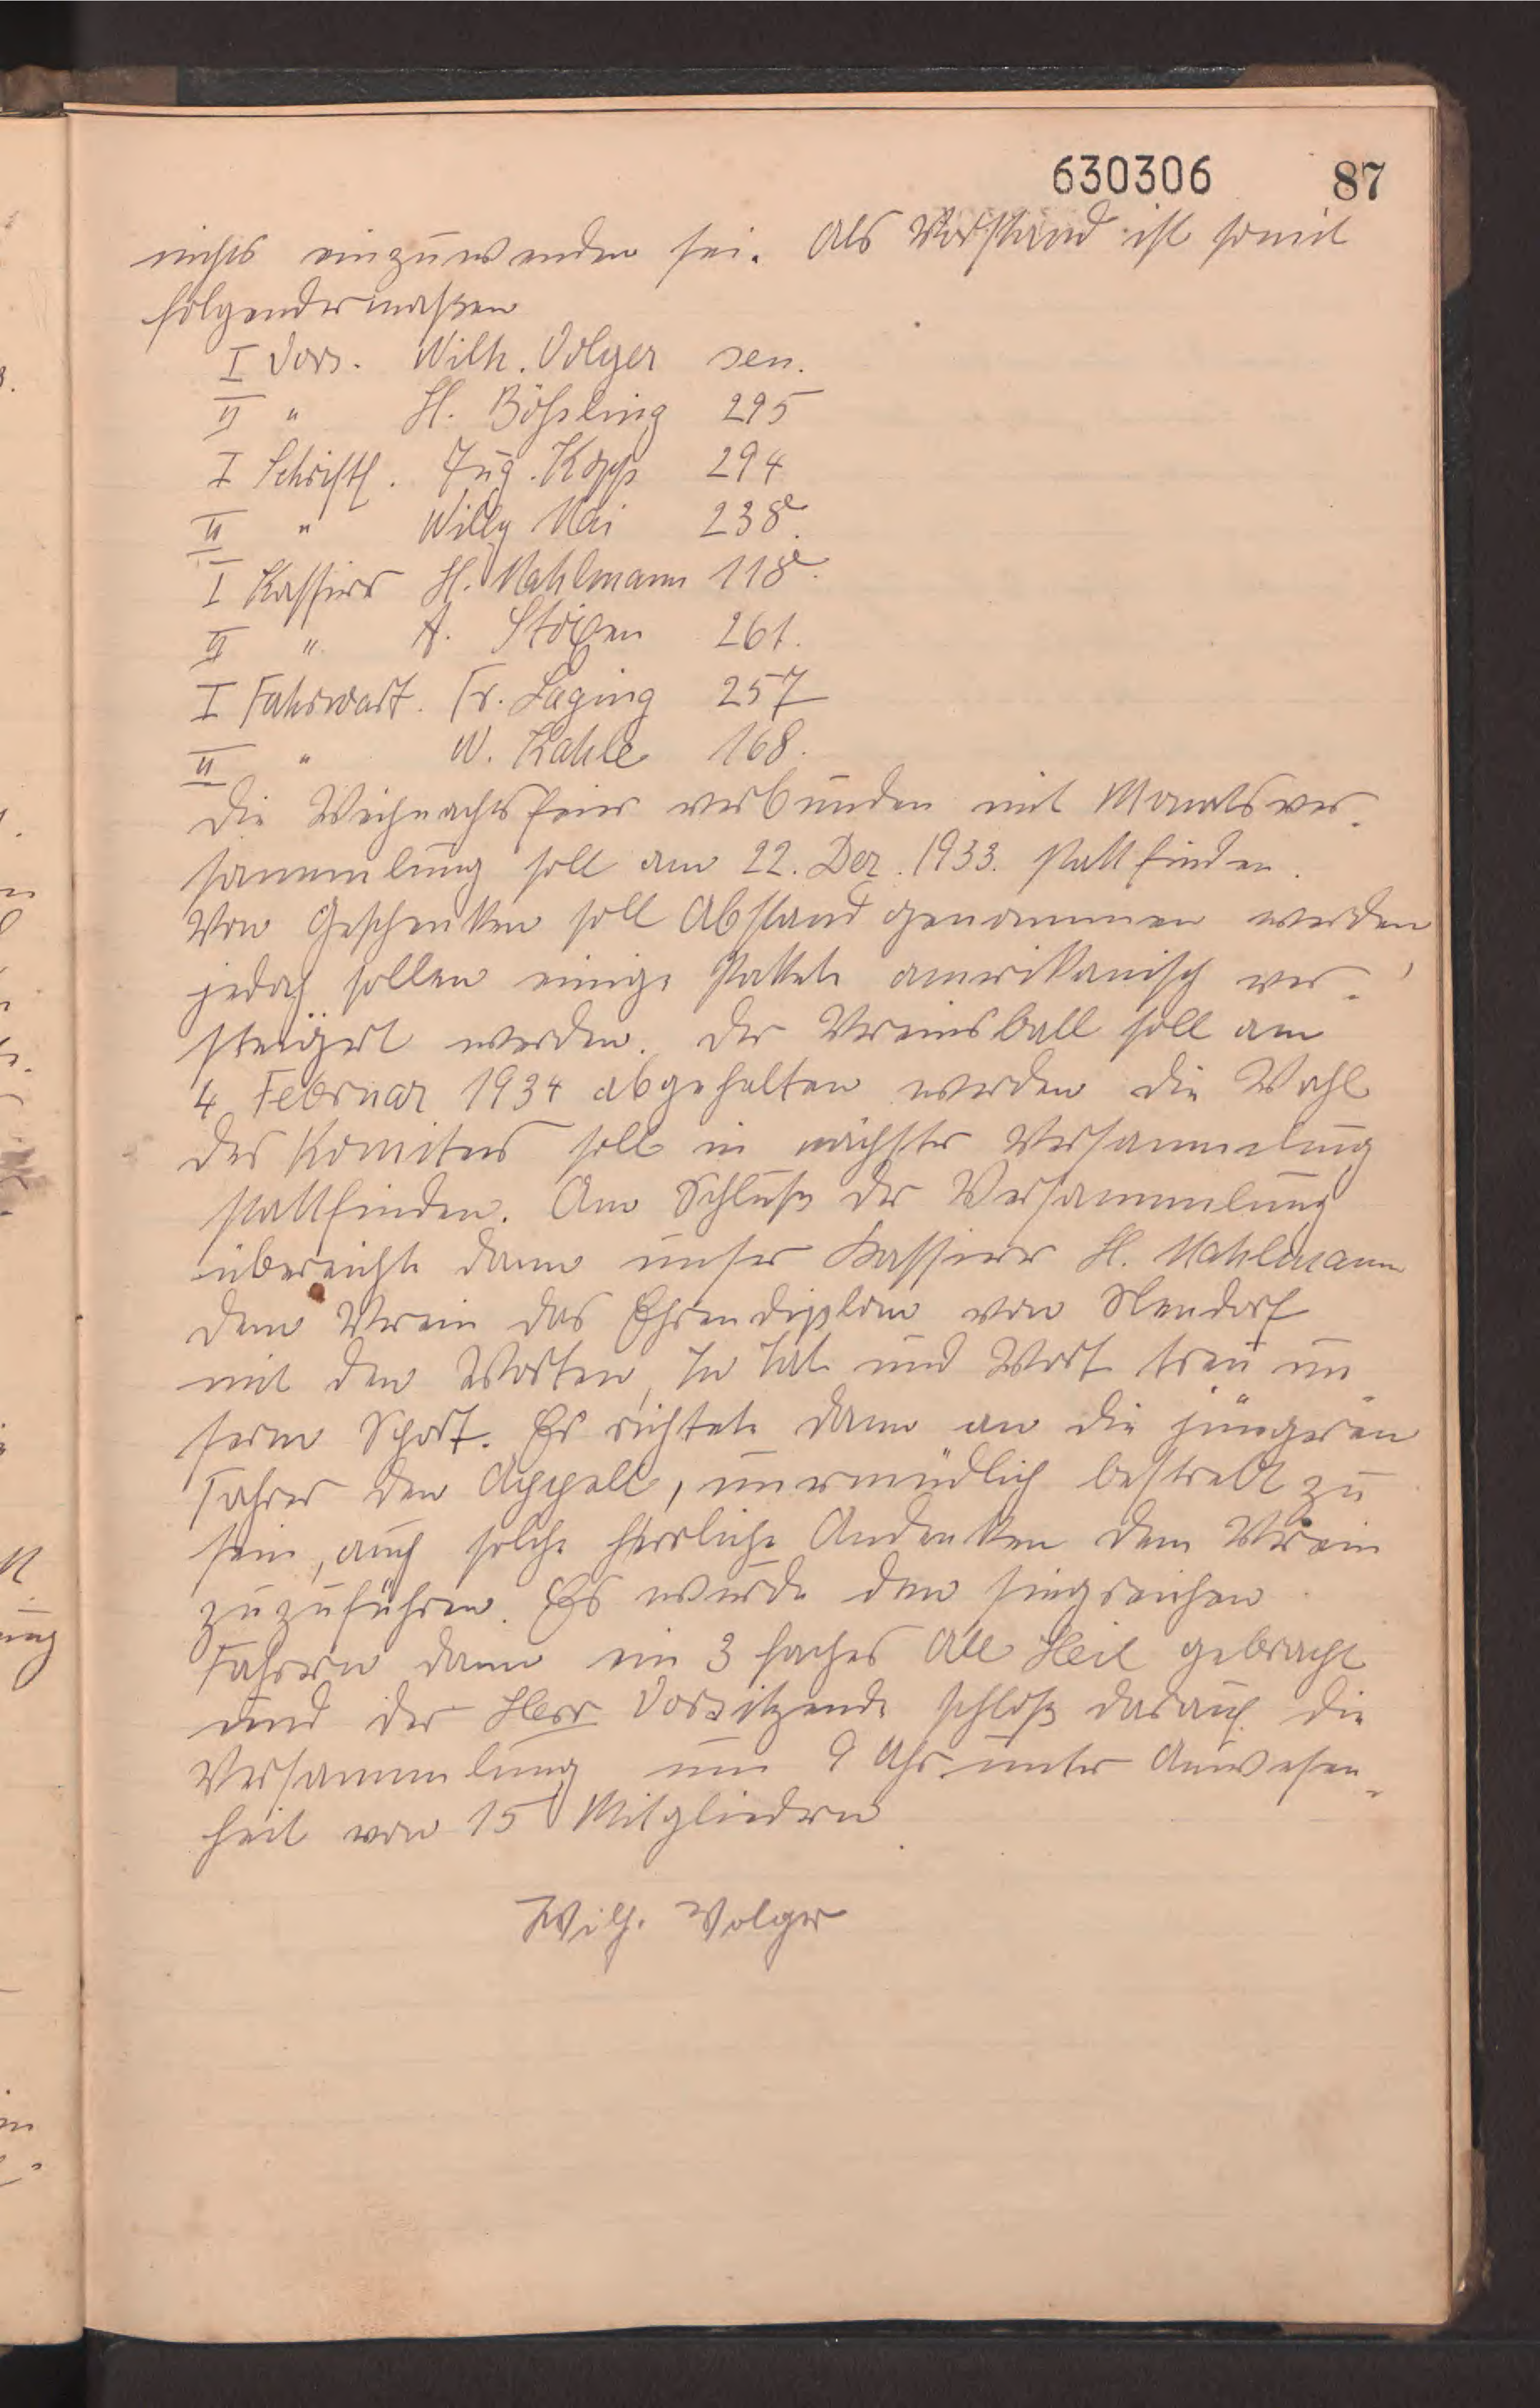 630306 87
nichts einzuwenden sei. Als Vorstand ist somit
folgendermaßen
I Vors. Wilh. Volger sen.
II " H. Böhsling 295
I Schriftf. Aug. Kopp 294
II " Willy Mai 238.
I Kassirer H. Mahlmann 118.
II " A. Stöxen 261.
I Fahrwart. Fr. Laging 257
II " W. Kahle 168.
Die Weihnachtsfeier verbunden mit Monatsver-
sammlung soll am 22. Dez. 1933. stattfinden.
Von Geschenken soll Abstand genommen werden,
jedoch sollen einige Pakete amerikanisch ver-
steigert werden. Der Vereinsball soll am
4 Februar 1934 abgehalten werden die Wahl
des Komitees soll in nächster Versammlung
stattfinden. Am Schluß der Versammlung
übereichte dann unser Kassierer H. Mahlmann
dem Verein das Ehrendiplom von Nendorf
mit den Worten, In Tat und Wort treu un-
serm Sport. Er richtete dann an die jüngeren
Fahrer den Appell, unermüdlich bestrebt zu
sein, auch solche herrliche Andenken dem Verein
zuzuführen. Es wurde den siegreichen
Fahrern dann ein 3 faches All Heil gebracht
und der Herr Vorsitzende schloß darauf die
Versammlung um 9 Uhr unter Anwesen-
heit von 15 Mitgliedern
Wilh. Volger